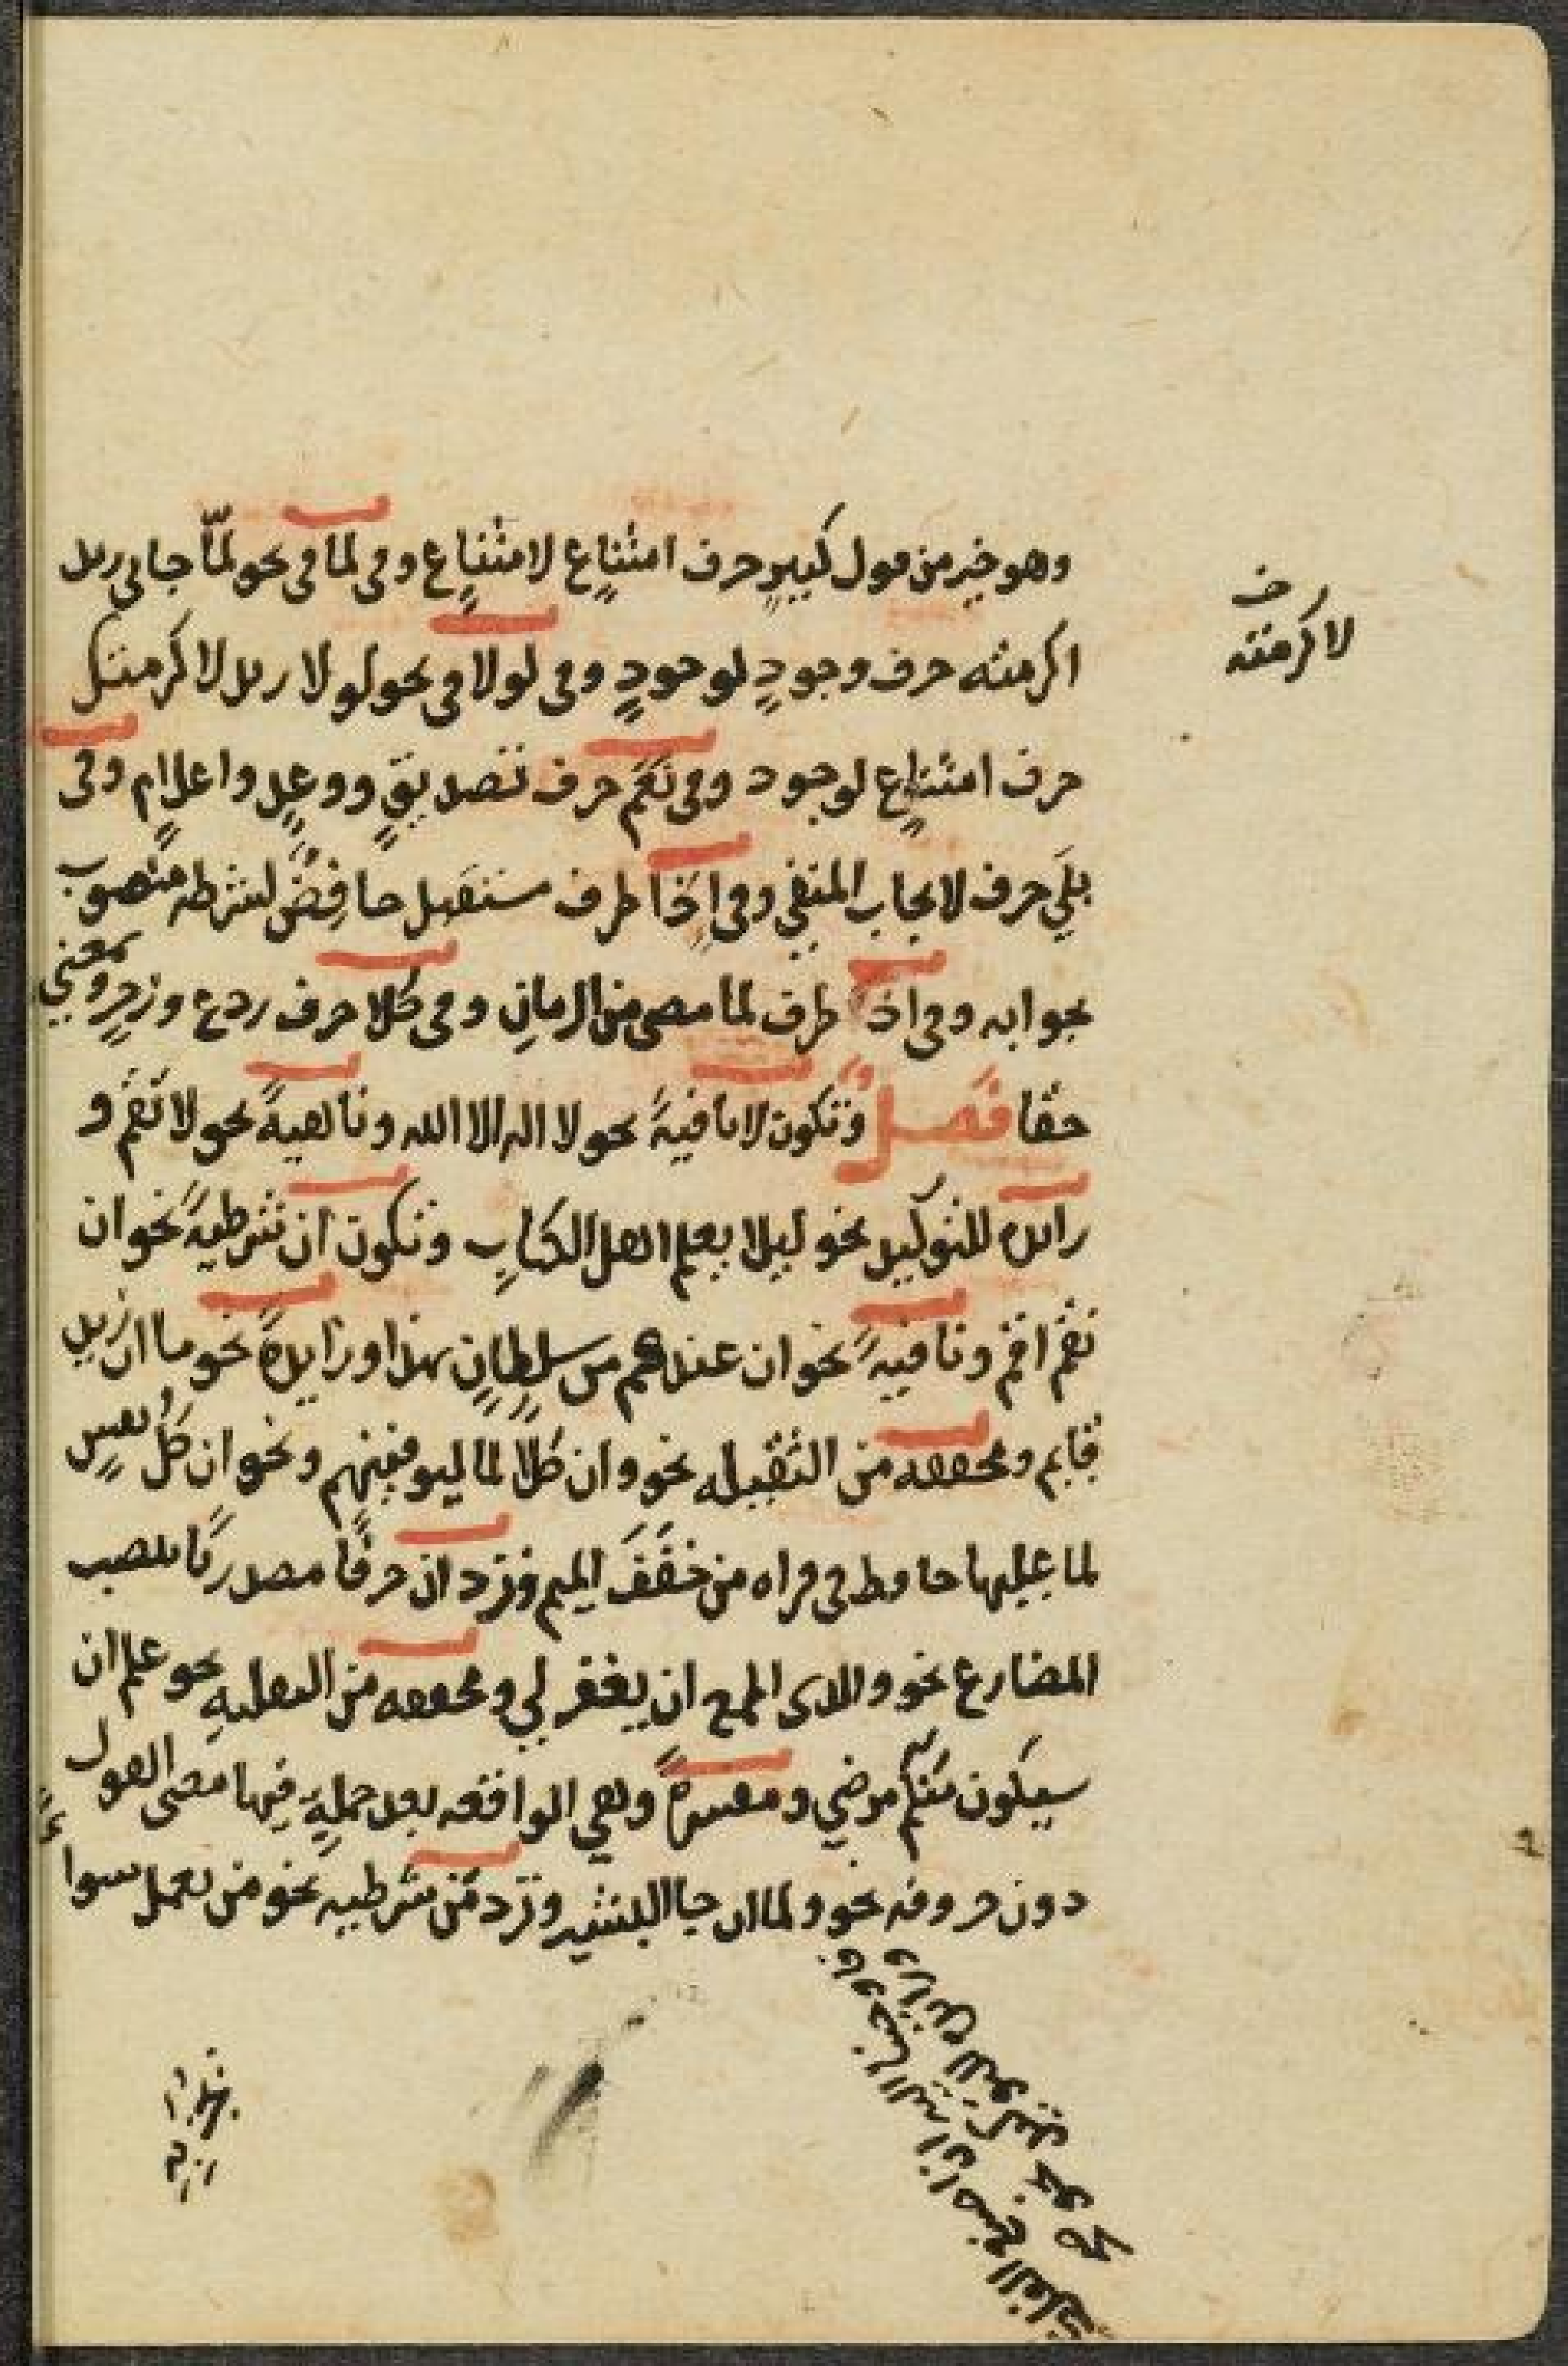 وهو خير من قول كثير حرف امتناع لامتناع وفى لما فى نحو لمّا جاني زيد
اكرمته حرف وجودٍ لوجودٍ وفى لولا فى نحو لولا زيد لاكرمتك
حرف امتناع لوجود وفى نَعَم حرف تصديقٍ ووعدٍ واعلامٍ وفى
بلَى حرف لايجاب المنفي وفى اِذا ظرف مستقبل خافِضٌ لشرطه منصوب
بجوابه وفى اذ ظرف لما مضى من الزمانِ وفى كلا حرف ردع وزجرٍ وبمعنى
حقا فصل وتكون لا نافيةً نحو لا اله الا الله وناهيةً نحو لا تقم و
زايده للتوكيد نحو ليلا يعلم اهل الكتابِ وتكون ان شرطيةً نحو ان
تقم اقم ونافيةً نحو ان عندهم من سلطانٍ بهذا وزايدةً نحو ما ان زيد
قايم ومخففه من الثقيله نحو وان كلاً لما ليوفينهم ونحو ان كلُّ نفسٍ
لما عليها حافظ فى قراه من خفَّفَ الميم وترد ان حرفًا مصدريًا ينصب
المضارع نحو والذى اطمع ان يغفر لي ومخففه من الثقيلهِ نحو علم ان
سيكون منكم مرضي ومفسرةً وهي الواقعه بعد جملةٍ فيها معنى القول
دون حروفه نحو ولما ان جا البشير وترد من شرطيه نحو من يعمل سوا
نحو فاوحينا اليه ان اصنع الفلك
وزايده للتوكيد نحو
لاكرمته